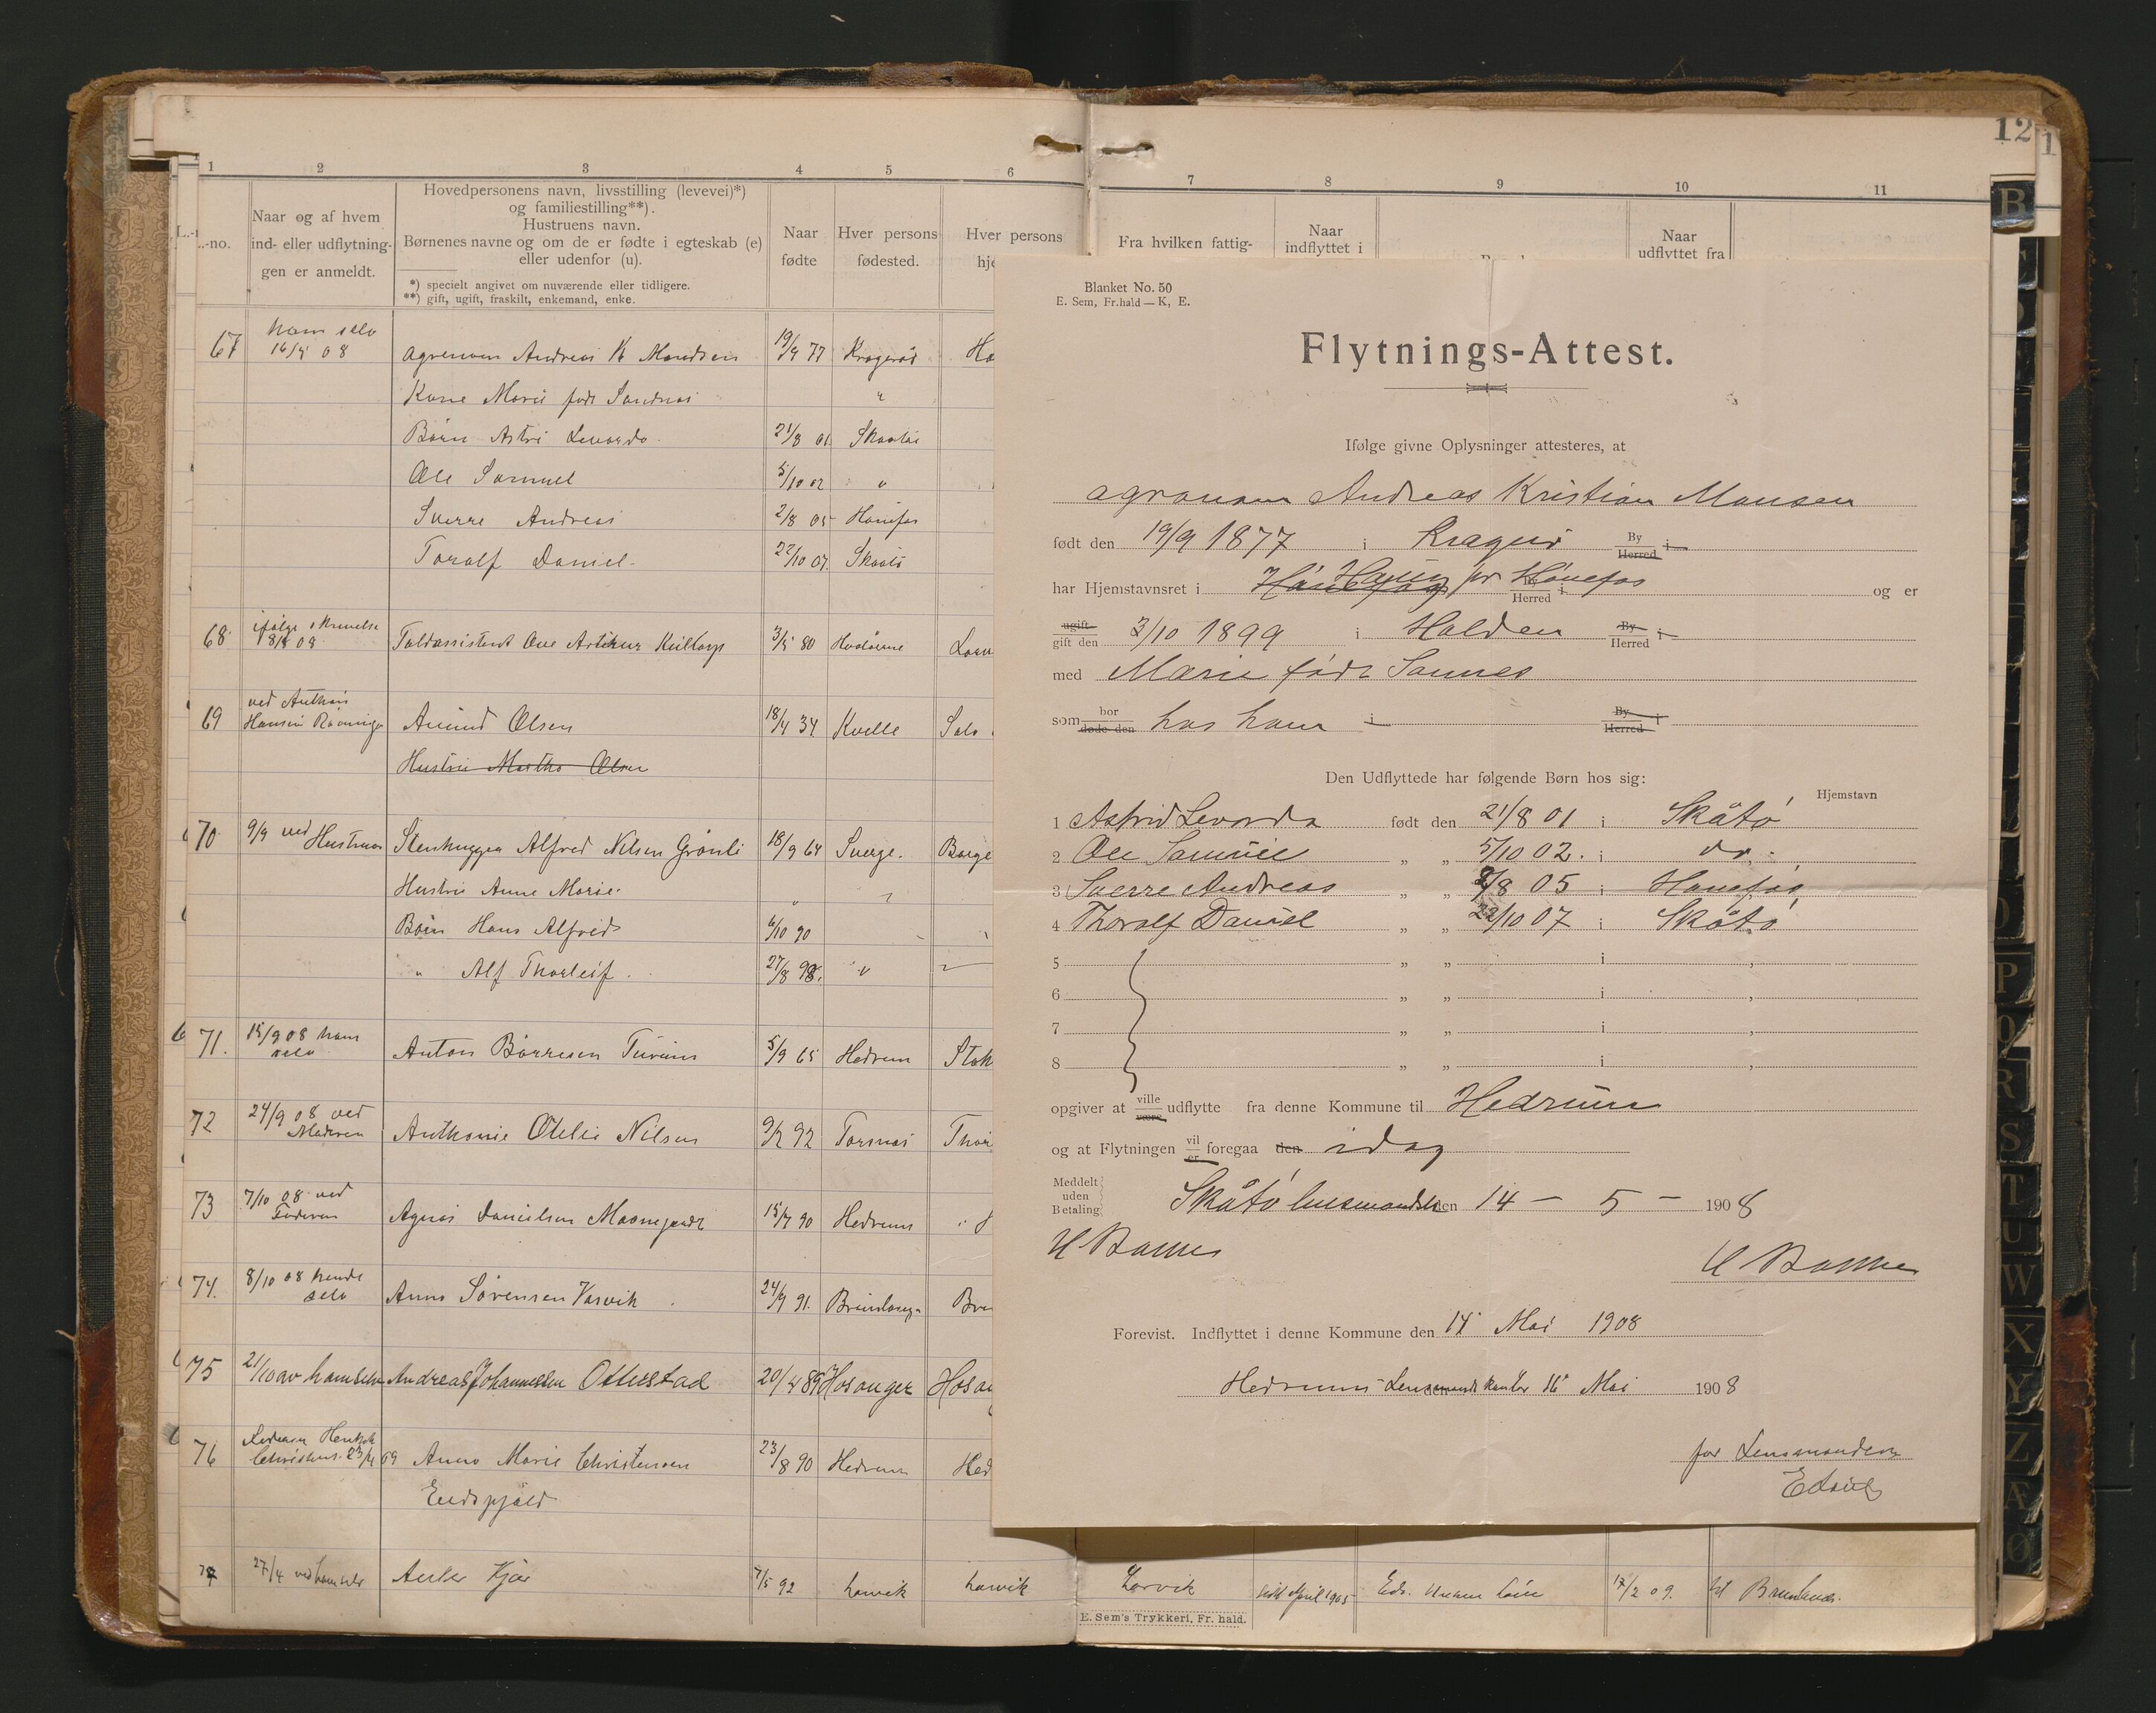 1 2 3 4 5 6
L.-no.
Naar og af hvem
ind- eller udflytnin-
gen er anmeldt.
Hovedpersonens navn, livsstilling (levevei)*)
og familiestilling**).
Hustruens navn.
Børnenes navne og om de er fødte i egteskab (e)
eller udenfor (u).
*) specielt angivet om nuværende eller tidligere.
**) gift, ugift, fraskilt, enkemand, enke.
Naar
fødte
Hver persons
fødested.
Hver persons
hje
67 ham selv
16/5 08 agronom Andreas K 19/9 77 Kragerø
Kone Marie født
Børn Astri 21/8 01 Skaatø
Ole Samuel 5/10 02 "
Sverre Andreas 2/8 05 Hønefos
Toralf Daniel 22/10 07 Skaatø
68 ifølge skrivelse
Toldassistent 80
69 ved
Hansen Olsen 18/4 34 Kvelle
Hustru Martha Olsen
70 9/9 ved Hustruen Stenhugger Alfred Nilsen Grønli 18/9 64 Sverge Borge
Hustru Anne Marie " "
Børn Hans Alfred 6/10 90
" Alf Thorleif 27/8 98 "
71. 15/9 08 ham
selv Anton Børresen 5/9 65 Hedrum Stok
72 24/9 08 ved
Moderen Anthonie Otelie Nilsen 9/2 92 Torsnæs
73 7/10 08 ved
Faderen Agnes Danielsen 15/7 90 Hedrum
74. 8/10 08 hende
selv Anna Sørensen Varvik 24/9 91. Brunlanes Bru
75 21/10 av ham selv Andreas Johannessen Ottestad 20/4 89 Hosanger Hosan
76 Anna Marie Christensen 23/8 90 Hedrum Hed
77 27/4 ved ham selv Anker Kjær 7/5 92 Larvik Larvik
12 1
7 8 9 10 11
Fra hvilken fattig-
Naar
indflyttet i
Naar
udflyttet fra
Larvik April 1905 17/2 09. til Brunlanes.
E. Sem's Trykkeri, Fr. hald.
Blanket No. 50
E. Sem, Fr.hald — K, E.
Flytnings-Attest.
Ifølge givne Oplysninger attesteres, at
agronom Andreas Kristian Monsen
født den 19/9 1877 i Kragerø By
Herred i
har Hjemstavnsret i Hønefos Haug pr Hønefos
Herred i og er
ugift
gift den 3/10 1899 i Halden By
Herred i
med Marie født Sannes
som bor
døde den hos ham i By
Herred i
Den Udflyttede har følgende Børn hos sig:
Hjemstavn
1 Astrid Levorda født den 21/8 01 i Skåtø
2 Ole Samuel „ „ 5/10 02. i do
3 Sverre Andreas „ „ 2/8 05 i Hønefos,
4 Thoralf Daniel „ „ 22/10 07 i Skåtø
5 „ „ i
6 „ „ i
7 „ „ i
8 „ „ i
opgiver at ville
være udflytte fra denne Kommune til Hedrum
og at Flytningen vil
er foregaa den idag
Meddelt
uden
Betaling
Skåtø lensmandsk den 14 - 5 - 1908
Forevist. Indflyttet i denne Kommune den 14 Mai 1908
Hedrums Lensmandskontor den 16 Mai 1908
for Lensmanden
B O P Q R S T U W X Y Z Æ Ø